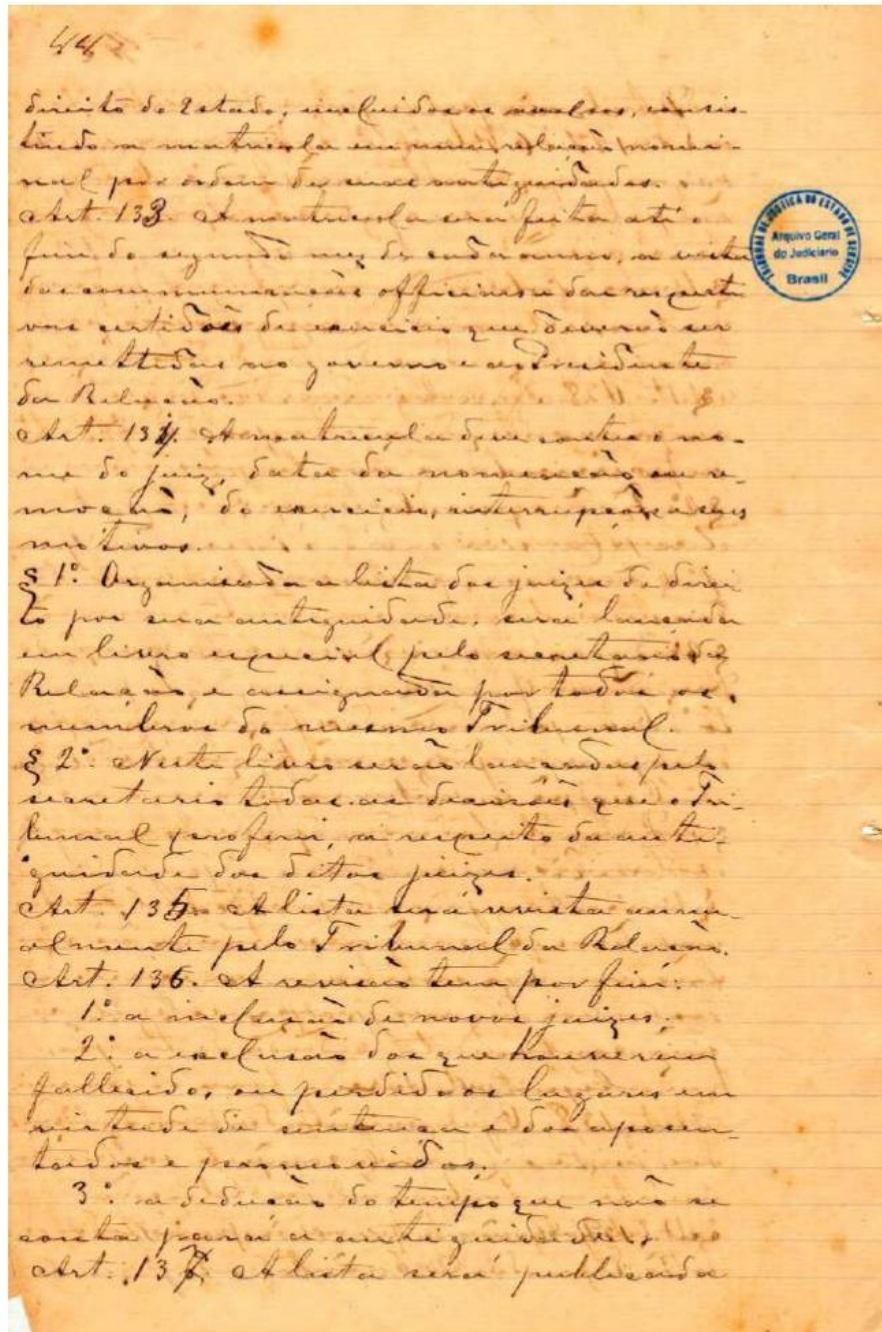 44
direito do Estado, incluidos os avulsos, consis-
tindo a matricula em uma relação nomi-
nal por ordem de suas antiguidades.
Art. 133. A matricula será feita até o
fim do segundo mez de cada anno, a vista
das communicações officiaes e das respecti
vas certidões de exercicio que deverão ser
remettidas ao governo e ao Presidente
da Relação.
Art. 134. A matricula deve conter o no-
me do juiz, data da nomeação ou re-
moção, do exercicio, interrupções e seus
motivos.
§ 1º. Organisada a lista dos juizes de direi
to por sua antiguidade, será lançada
em livro especial, pelo secretario da
Relação, e assignada por todos os
membros do mesmo Tribunal.
§ 2º. Neste livro serão lançadas pelo
secretario todas as decisões que o Tri-
bunal proferir, a respeito da anti-
guidade dos ditos juizes.
Art. 135. A lista será revista annu-
almente pelo Tribunal da Relação.
Art. 136. A revisão tem por fim:
1º. a inclusão de novos juizes;
2º. a exclusão dos que houverem
fallecido, ou perdido os lugares em
virtude de sentença e dos aposen-
tados e promovidos.
3º. a deducão do tempo que não se
conta para a antiguidade.
Art. 137. A lista será publicada
TRIBUNAL DE JUSTIÇA DO ESTADO DE SERGIPE
Arquivo Geral
do Judiciário
Brasil